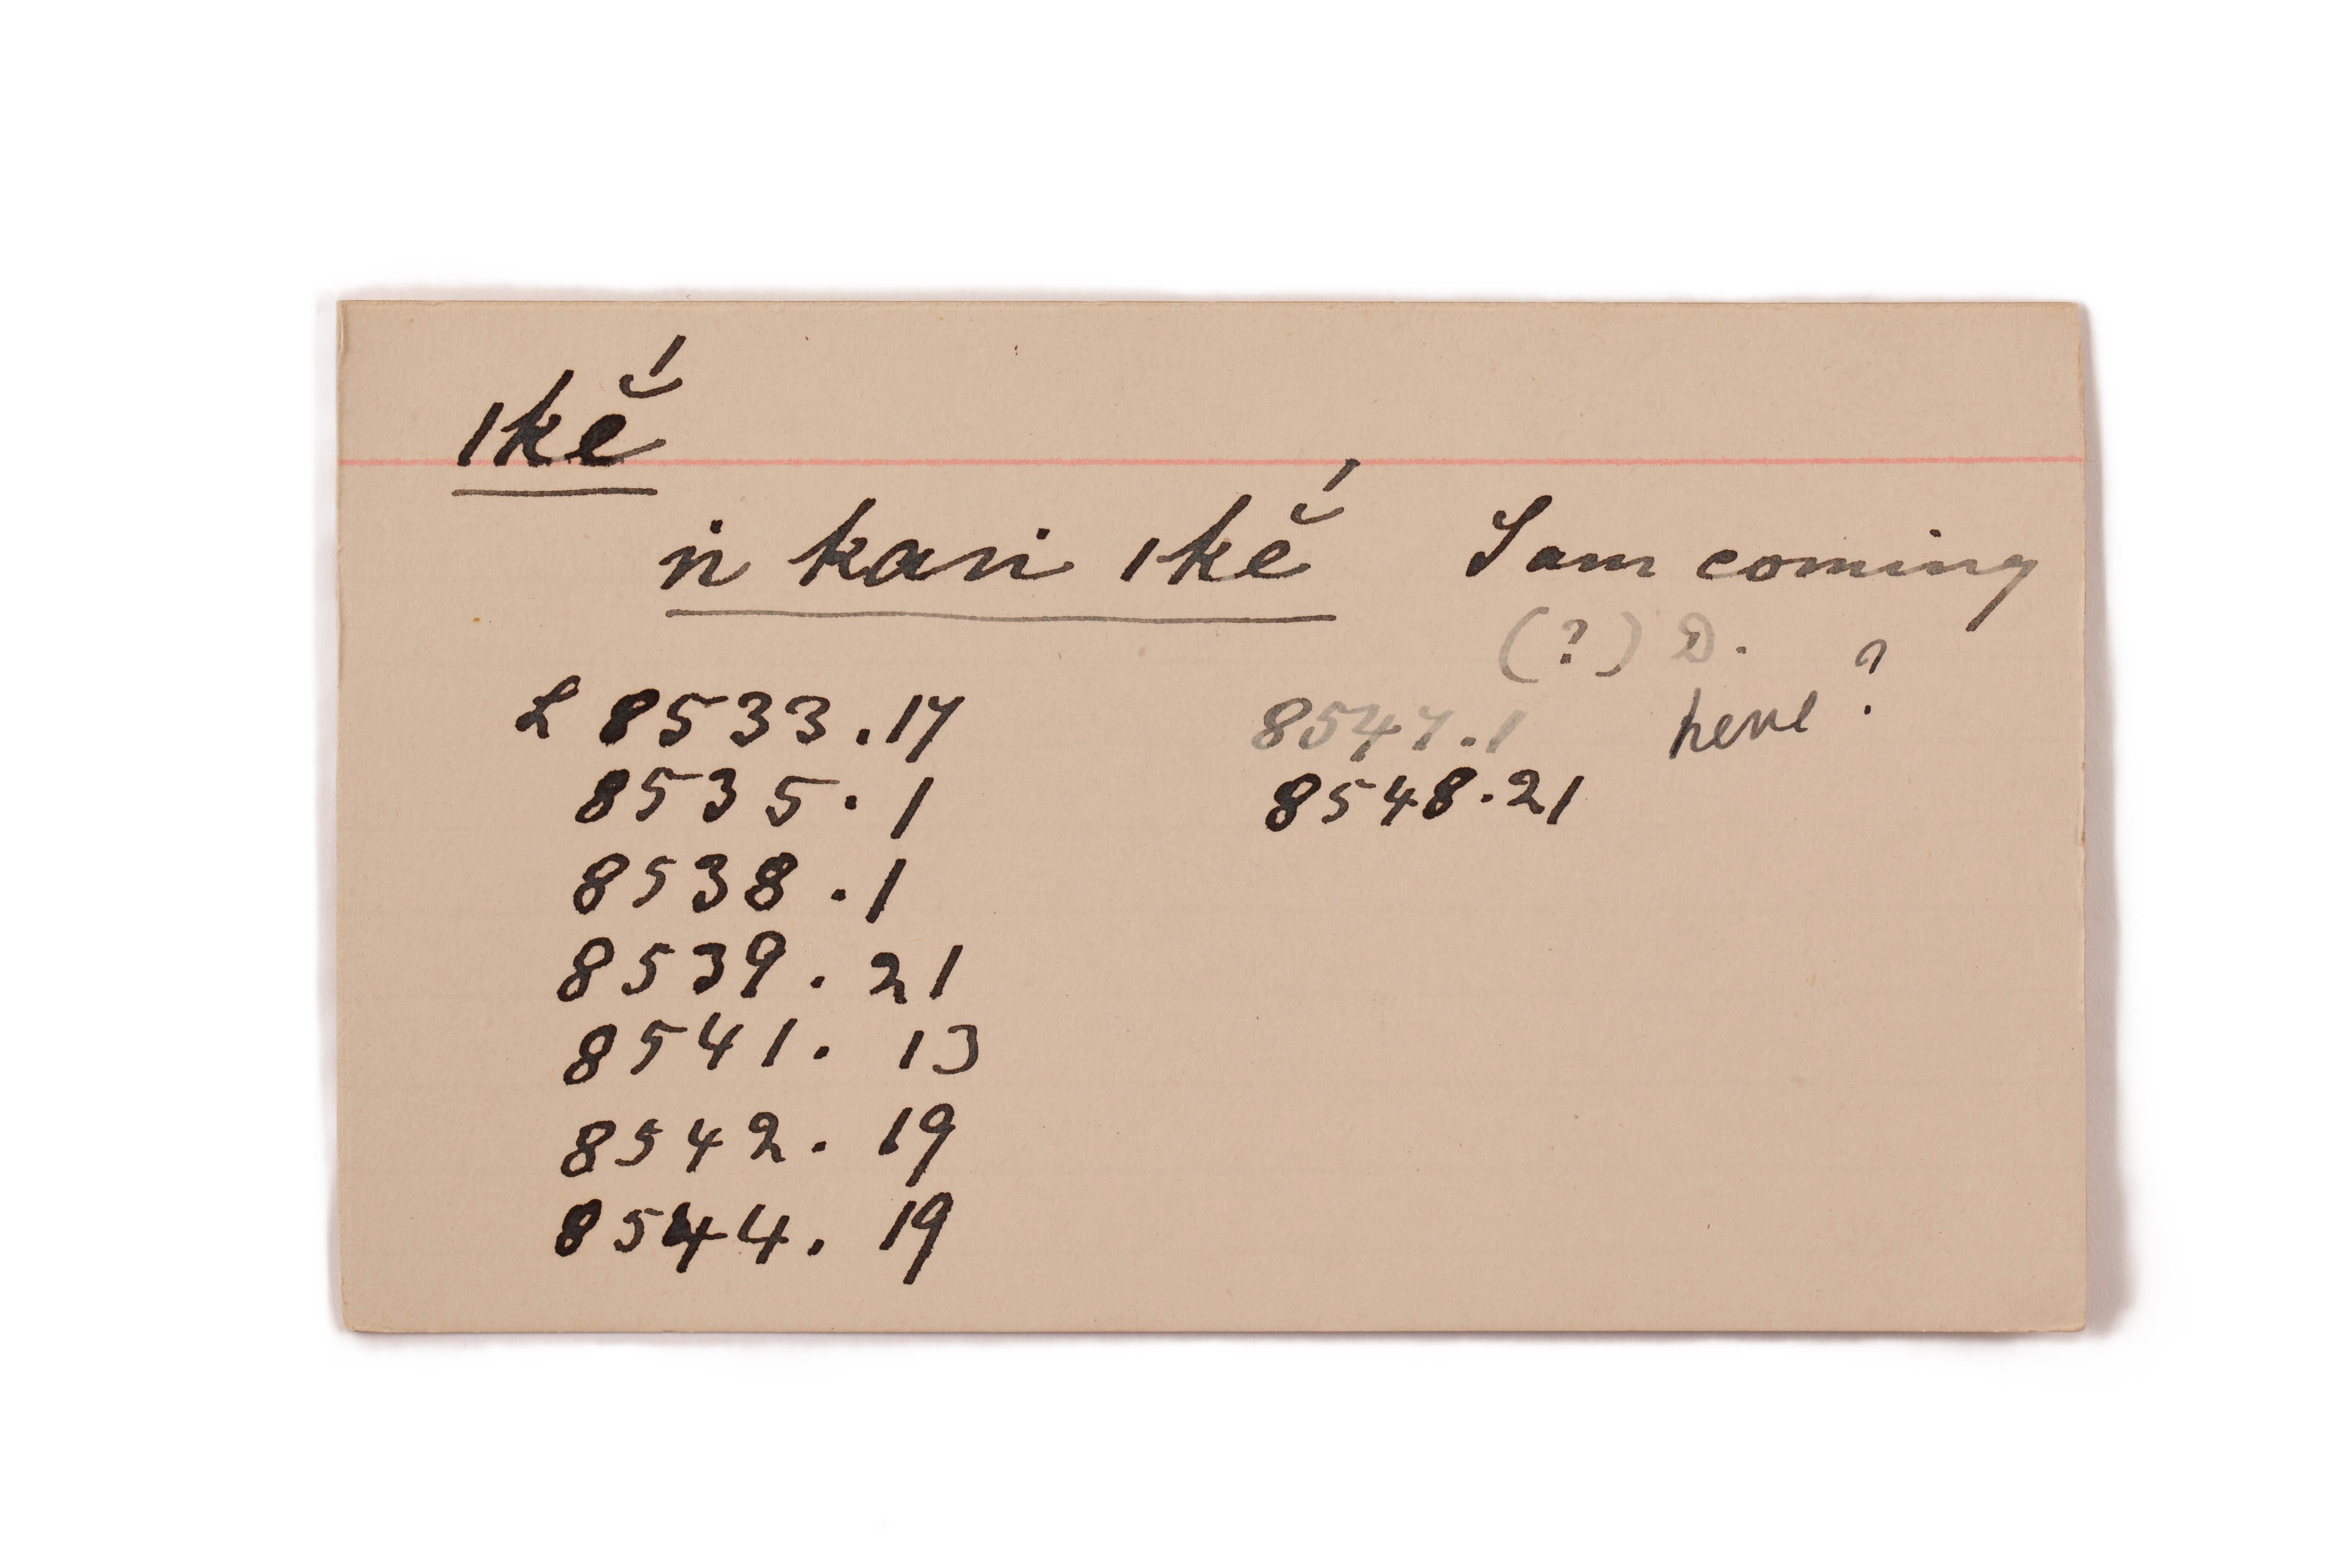 ıkĕ́
ṅ kaṅ ıkĕ́ I am coming
(?) D.
here ?
L 8533.17
8535.1
8538.1
8539.21
8541.13
8542.19
8544.19
8547.1
8548.21